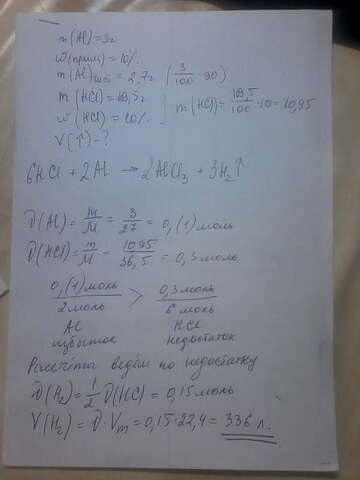 m(Al)=3г
ω(прим)=10%
m(Al)чист = 2,7г (3/100 · 90)
m(HCl)=109,5г
ω(HCl)=10%
m(HCl)=109,5/100 · 10=10,95
V(↑)-?
6HCl + 2Al → 2AlCl3 + 3H2↑
ν(Al)=m/M=3/27=0,(1)моль
ν(HCl)=m/M=10,95/36,5=0,3моль
0,(1)моль/2моль > 0,3моль/6моль
Al HCl
избыток недостаток
Рассчёты ведём по недостатку
ν(H2)=1/2 ν(HCl)=0,15моль
V(H2)=ν·Vm=0,15·22,4=336 л.